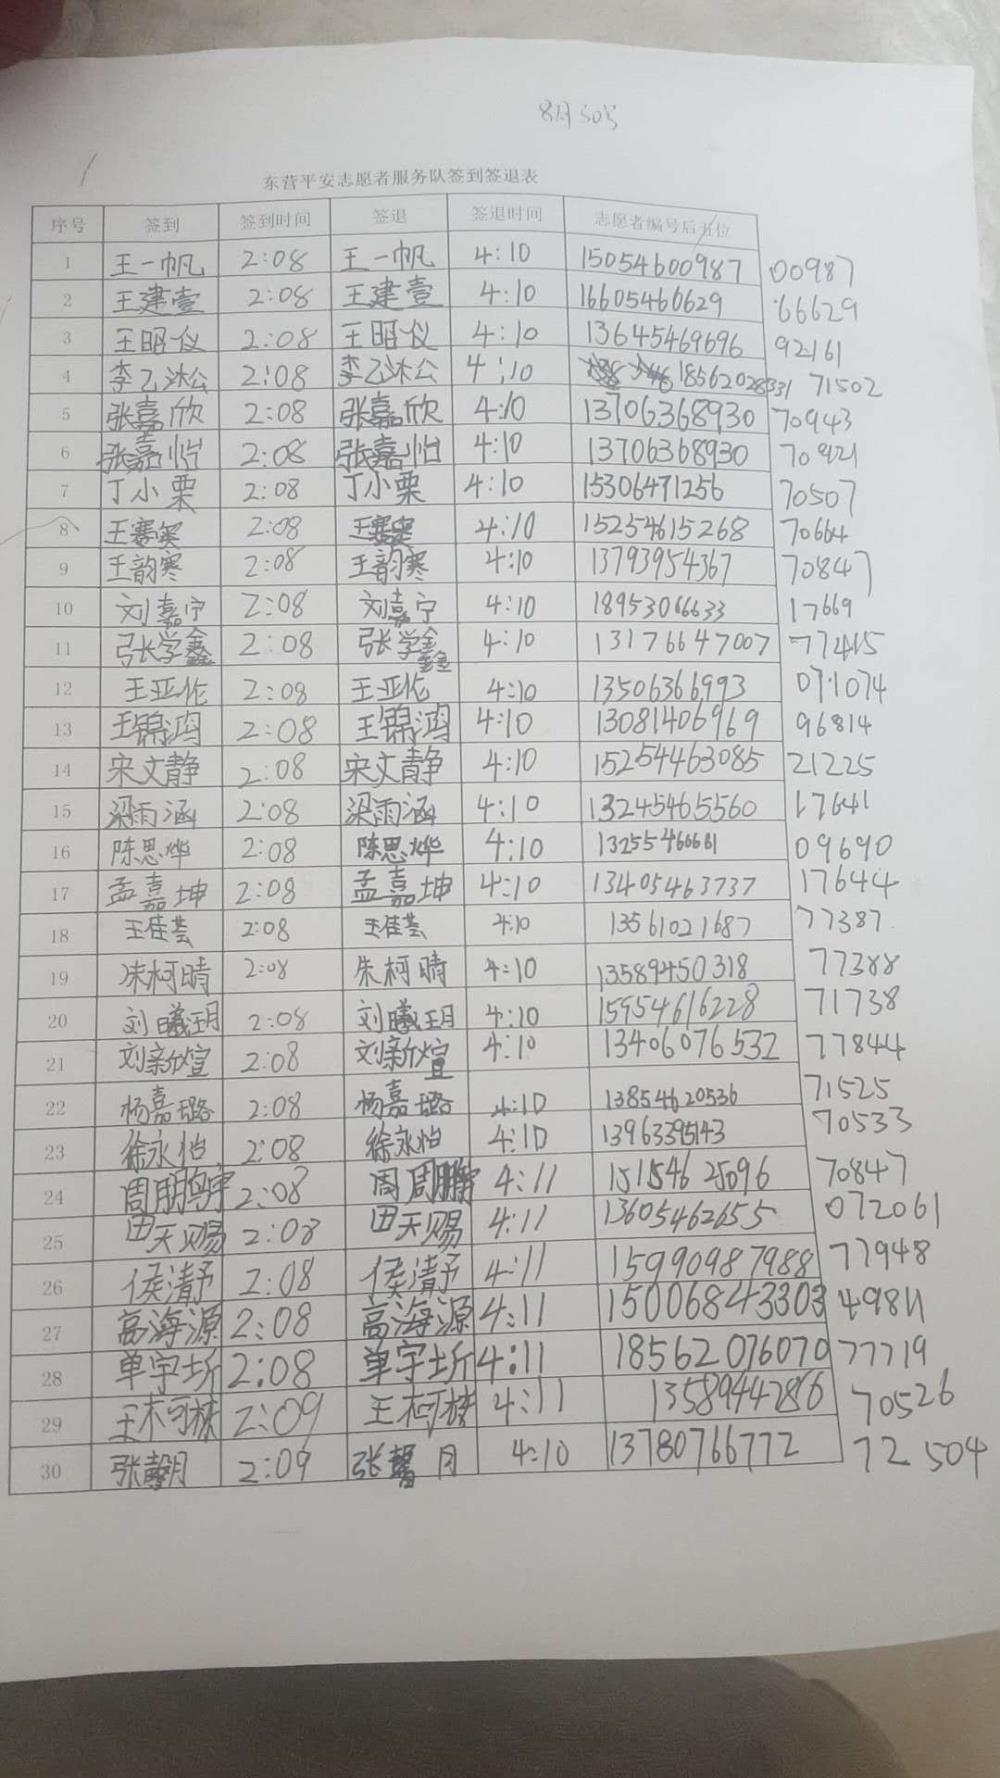 8月30号
东营平安志愿者服务队签到签退表
序号 签到 签到时间 签退 签退时间 志愿者编号后五位
1 王一帆 2:08 王一帆 4:10 15054600987 00987
2 王建壹 2:08 王建壹 4:10 16605460629 66629
3 王昭仪 2:08 王昭仪 4:10 13645469696 92161
4 李乙沐公 2:08 李乙沐公 4:10 18562028331 71502
5 张嘉欣 2:08 张嘉欣 4:10 13706368930 70943
6 张嘉怡 2:08 张嘉怡 4:10 13706368930 70921
7 丁小栗 2:08 丁小栗 4:10 15306471256 70507
8 王赛奕 2:08 4:10 15254615268 70664
9 王韵寒 2:08 王韵寒 4:10 13793954367 70847
10 刘嘉宁 2:08 刘嘉宁 4:10 18953066633 17669
11 张学鑫 2:08 张学鑫 4:10 13176647007 77415
12 王亚伦 2:08 王亚伦 4:10 13506366993 071074
13 王锦鸿 2:08 王锦鸿 4:10 13081406969 96814
14 宋文静 2:08 宋文静 4:10 15254463085 21225
15 梁雨涵 2:08 梁雨涵 4:10 13245465560 17641
16 陈思烨 2:08 陈思烨 4:10 1325546661 09690
17 孟嘉坤 2:08 孟嘉坤 4:10 13405463737 17644
18 王佳芸 2:08 王佳芸 4:10 13561021687 77387
19 朱柯晴 2:08 朱柯晴 4:10 13589450318 77388
20 刘曦玥 2:08 刘曦玥 4:10 15954616228 71738
21 刘新煊 2:08 刘新煊 4:10 13406076532 77844
22 杨嘉璐 2:08 杨嘉璐 4:10 13854620536 71525
23 徐永怡 2:08 徐永怡 4:10 13963395143 70533
24 周鹏宇 2:08 周 4:11 15154625096 70847
25 田天赐 2:08 田天赐 4:11 13605462655 072061
26 侯清予 2:08 侯清予 4:11 15990987988 77948
27 高海源 2:08 高海源 4:11 15006843303 49811
28 单宇圻 2:08 单宇圻 4:11 18562076070 77719
29 王柯棋 2:09 王柯棋 4:11 1358944786 70526
30 张馨月 2:09 张馨月 4:10 13780766772 72504